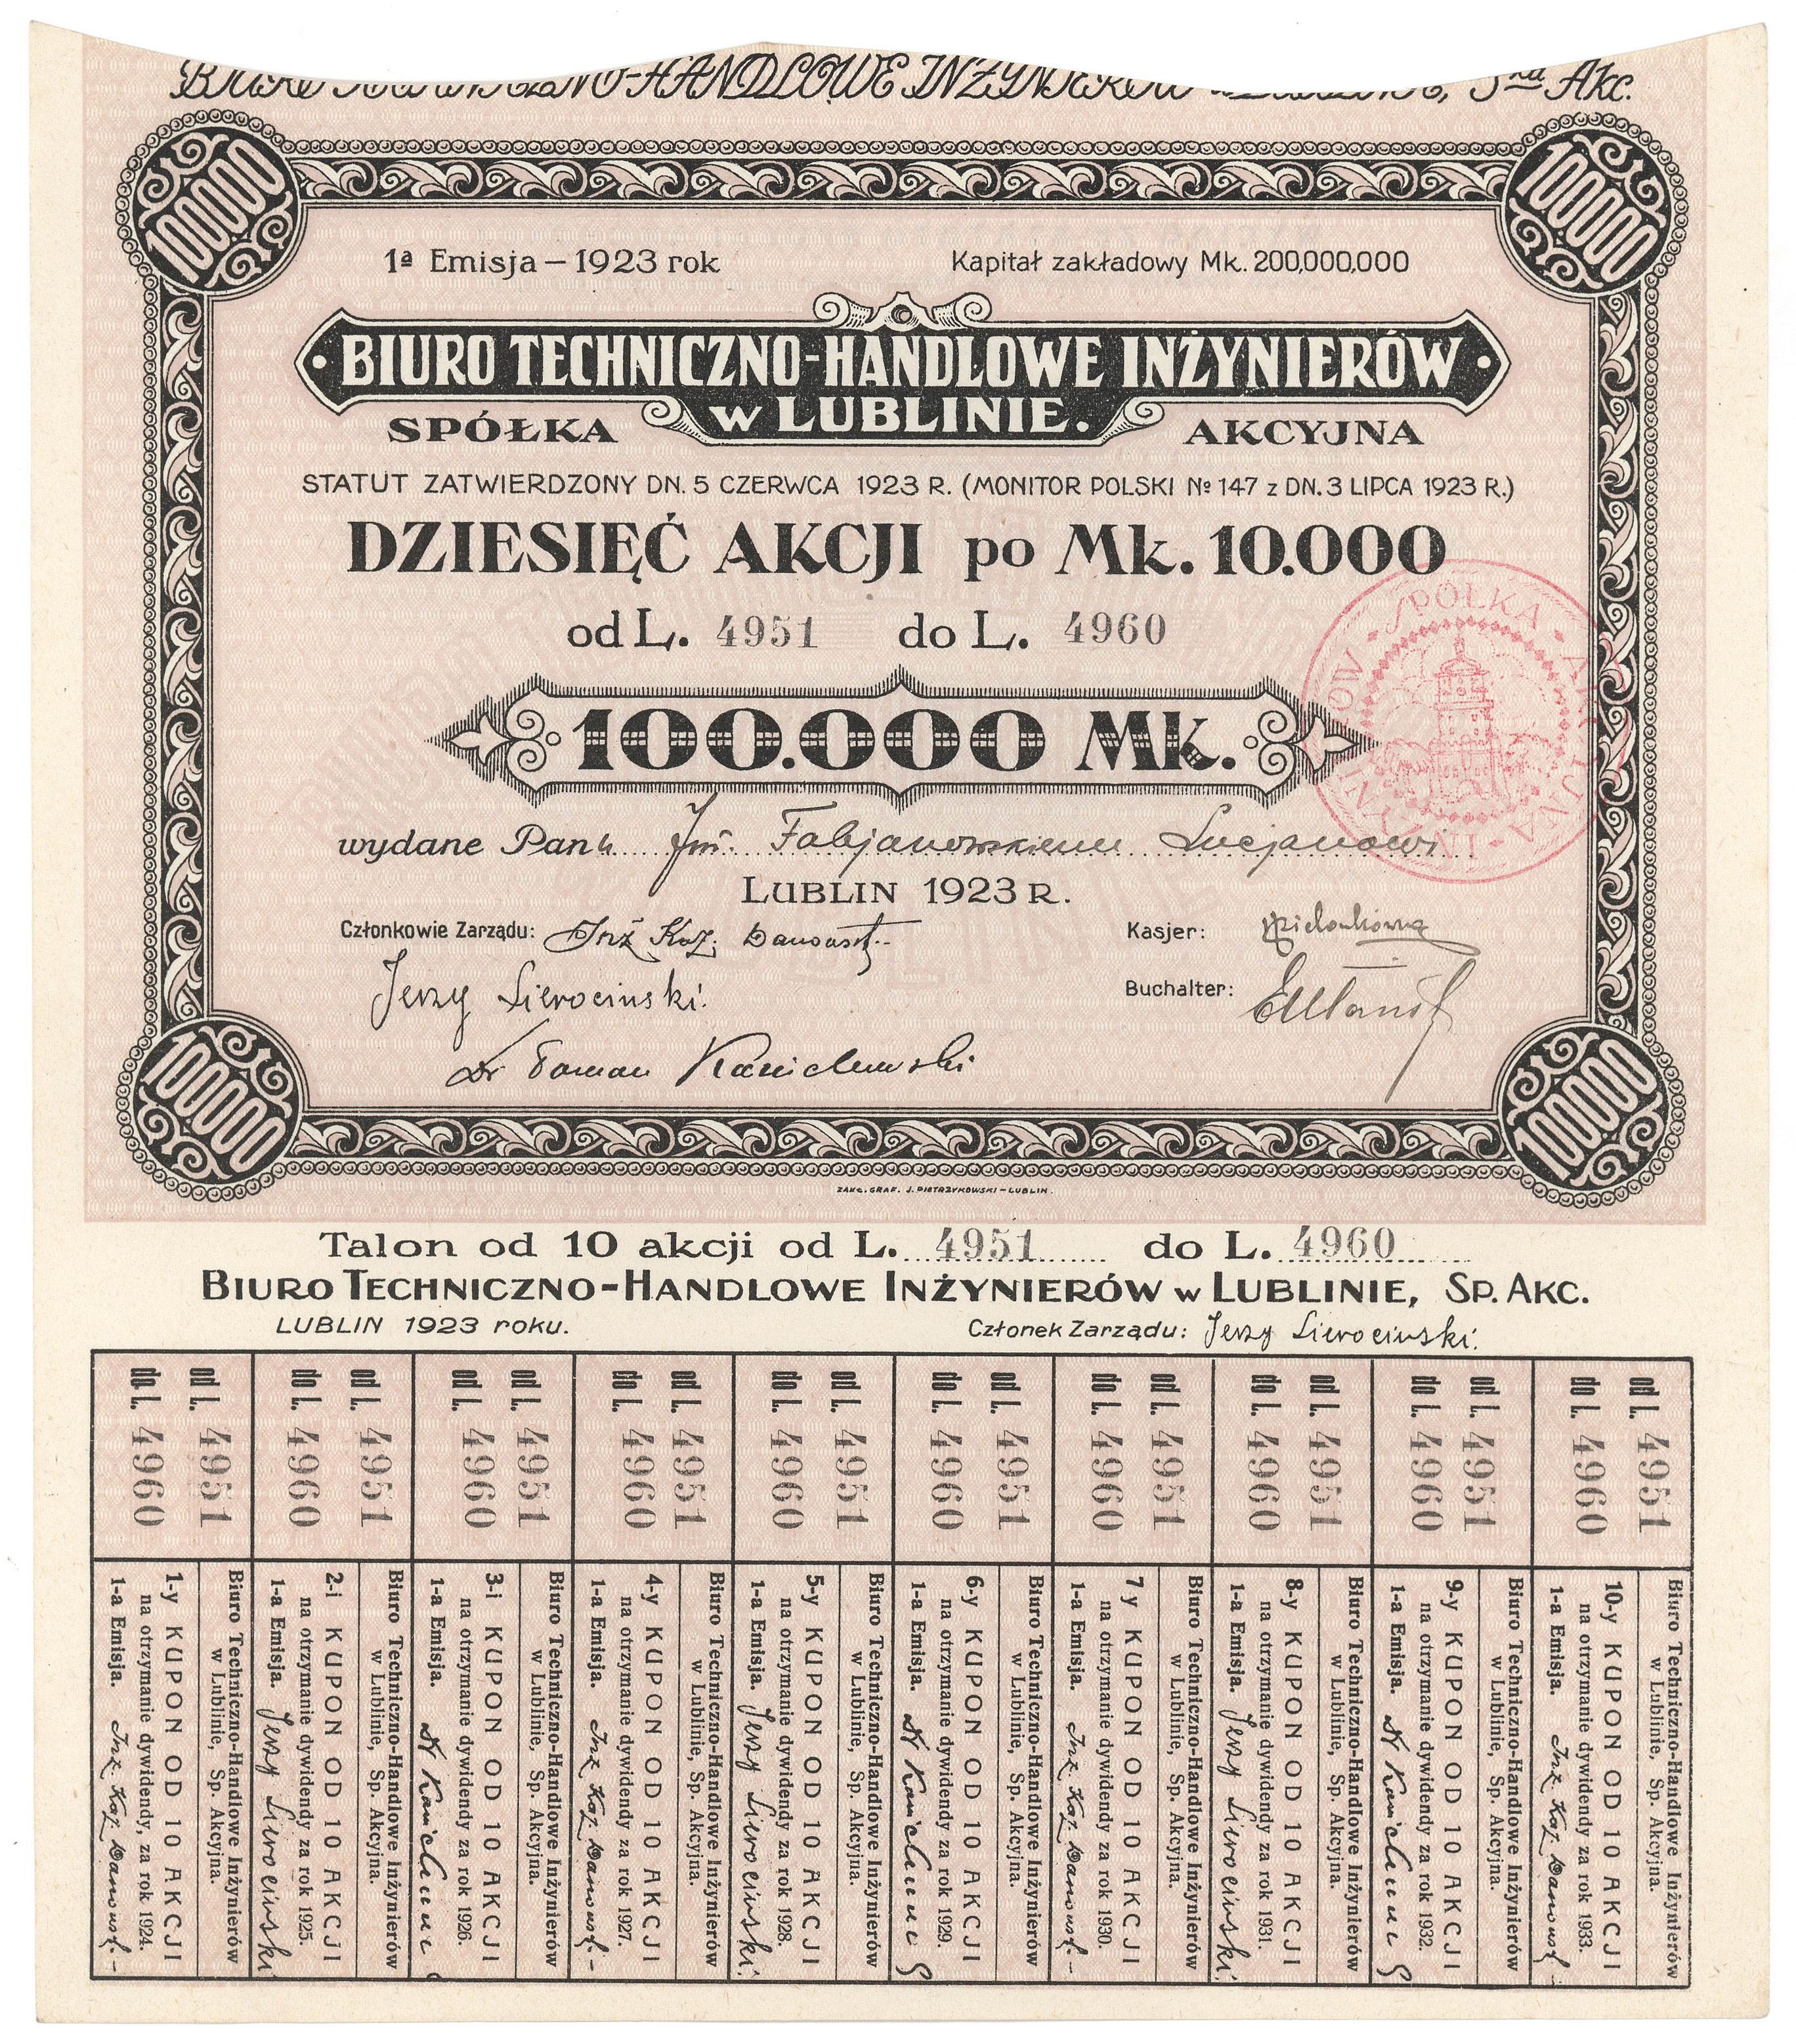 BIURO TECHNICZNO-HANDLOWE INŻYNIERÓW w LUBLINIE, Ska Akc.
100000
100000
1a Emisja – 1923 rok
Kapitał zakładowy Mk. 200,000,000
BIURO TECHNICZNO-HANDLOWE INŻYNIERÓW
w LUBLINIE.
SPÓŁKA AKCYJNA
STATUT ZATWIERDZONY DN. 5 CZERWCA 1923 R. (MONITOR POLSKI № 147 z DN. 3 LIPCA 1923 R.)
DZIESIĘĆ AKCJI po Mk. 10.000
od L. 4951 do L. 4960
SPÓŁKA
100.000 MK.
wydane Panu Inż. Fabjanowskiemu Lucjanowi
LUBLIN 1923 R.
Członkowie Zarządu: Inż Kaz.
Kasjer:
Jerzy Sierociński
Buchalter:
Dr Roman
100000
100000
ZAKŁ. GRAF. J. PIETRZYKOWSKI – LUBLIN.
Talon od 10 akcji od L. 4951 do L. 4960
BIURO TECHNICZNO-HANDLOWE INŻYNIERÓW w LUBLINIE, SP. AKC.
LUBLIN 1923 roku.
Członek Zarządu: Jerzy Sierociński
od L. 4951
do L. 4960
Biuro Techniczno-Handlowe Inżynierów
w Lublinie, Sp. Akcyjna.
1-y KUPON OD 10 AKCJI
na otrzymanie dywidendy, za rok 1924.
1-a Emisja. Inż. Kaz.
od L. 4951
do L. 4960
Biuro Techniczno-Handlowe Inżynierów
w Lublinie, Sp. Akcyjna.
2-i KUPON OD 10 AKCJI
na otrzymanie dywidendy za rok 1925.
1-a Emisja. Jerzy Sierociński
od L. 4951
do L. 4960
Biuro Techniczno-Handlowe Inżynierów
w Lublinie, Sp. Akcyjna.
3-i KUPON OD 10 AKCJI
na otrzymanie dywidendy za rok 1926.
1-a Emisja. Dr
od L. 4951
do L. 4960
Biuro Techniczno-Handlowe Inżynierów
w Lublinie, Sp. Akcyjna.
4-y KUPON OD 10 AKCJI
na otrzymanie dywidendy za rok 1927.
1-a Emisja. Inż Kaz.
od L. 4951
do L. 4960
Biuro Techniczno-Handlowe Inżynierów
w Lublinie, Sp. Akcyjna.
5-y KUPON OD 10 AKCJI
na otrzymanie dywidendy za rok 1928.
1-a Emisja. Jerzy Sierociński
od L. 4951
do L. 4960
Biuro Techniczno-Handlowe Inżynierów
w Lublinie, Sp. Akcyjna.
6-y KUPON OD 10 AKCJI
na otrzymanie dywidendy za rok 1929.
1-a Emisja. Dr
od L. 4951
do L. 4960
Biuro Techniczno-Handlowe Inżynierów
w Lublinie, Sp. Akcyjna.
7 y KUPON OD 10 AKCJI
na otrzymanie dywidendy za rok 1930.
1-a Emisja. Inż. Kaz.
od L. 4951
do L. 4960
Biuro Techniczno-Handlowe Inżynierów
w Lublinie, Sp. Akcyjna.
8-y KUPON OD 10 AKCJI
na otrzymanie dywidendy za rok 1931.
1-a Emisja. Jerzy Sierociński
od L. 4951
do L. 4960
Biuro Techniczno-Handlowe Inżynierów
w Lublinie, Sp. Akcyjna.
9-y KUPON OD 10 AKCJI
na otrzymanie dywidendy za rok 1932.
1-a Emisja. Dr
od L. 4951
do L. 4960
Biuro Techniczno-Handlowe Inżynierów
w Lublinie, Sp. Akcyjna.
10-y KUPON OD 10 AKCJI
na otrzymanie dywidendy za rok 1933.
1-a Emisja. Inż. Kaz.